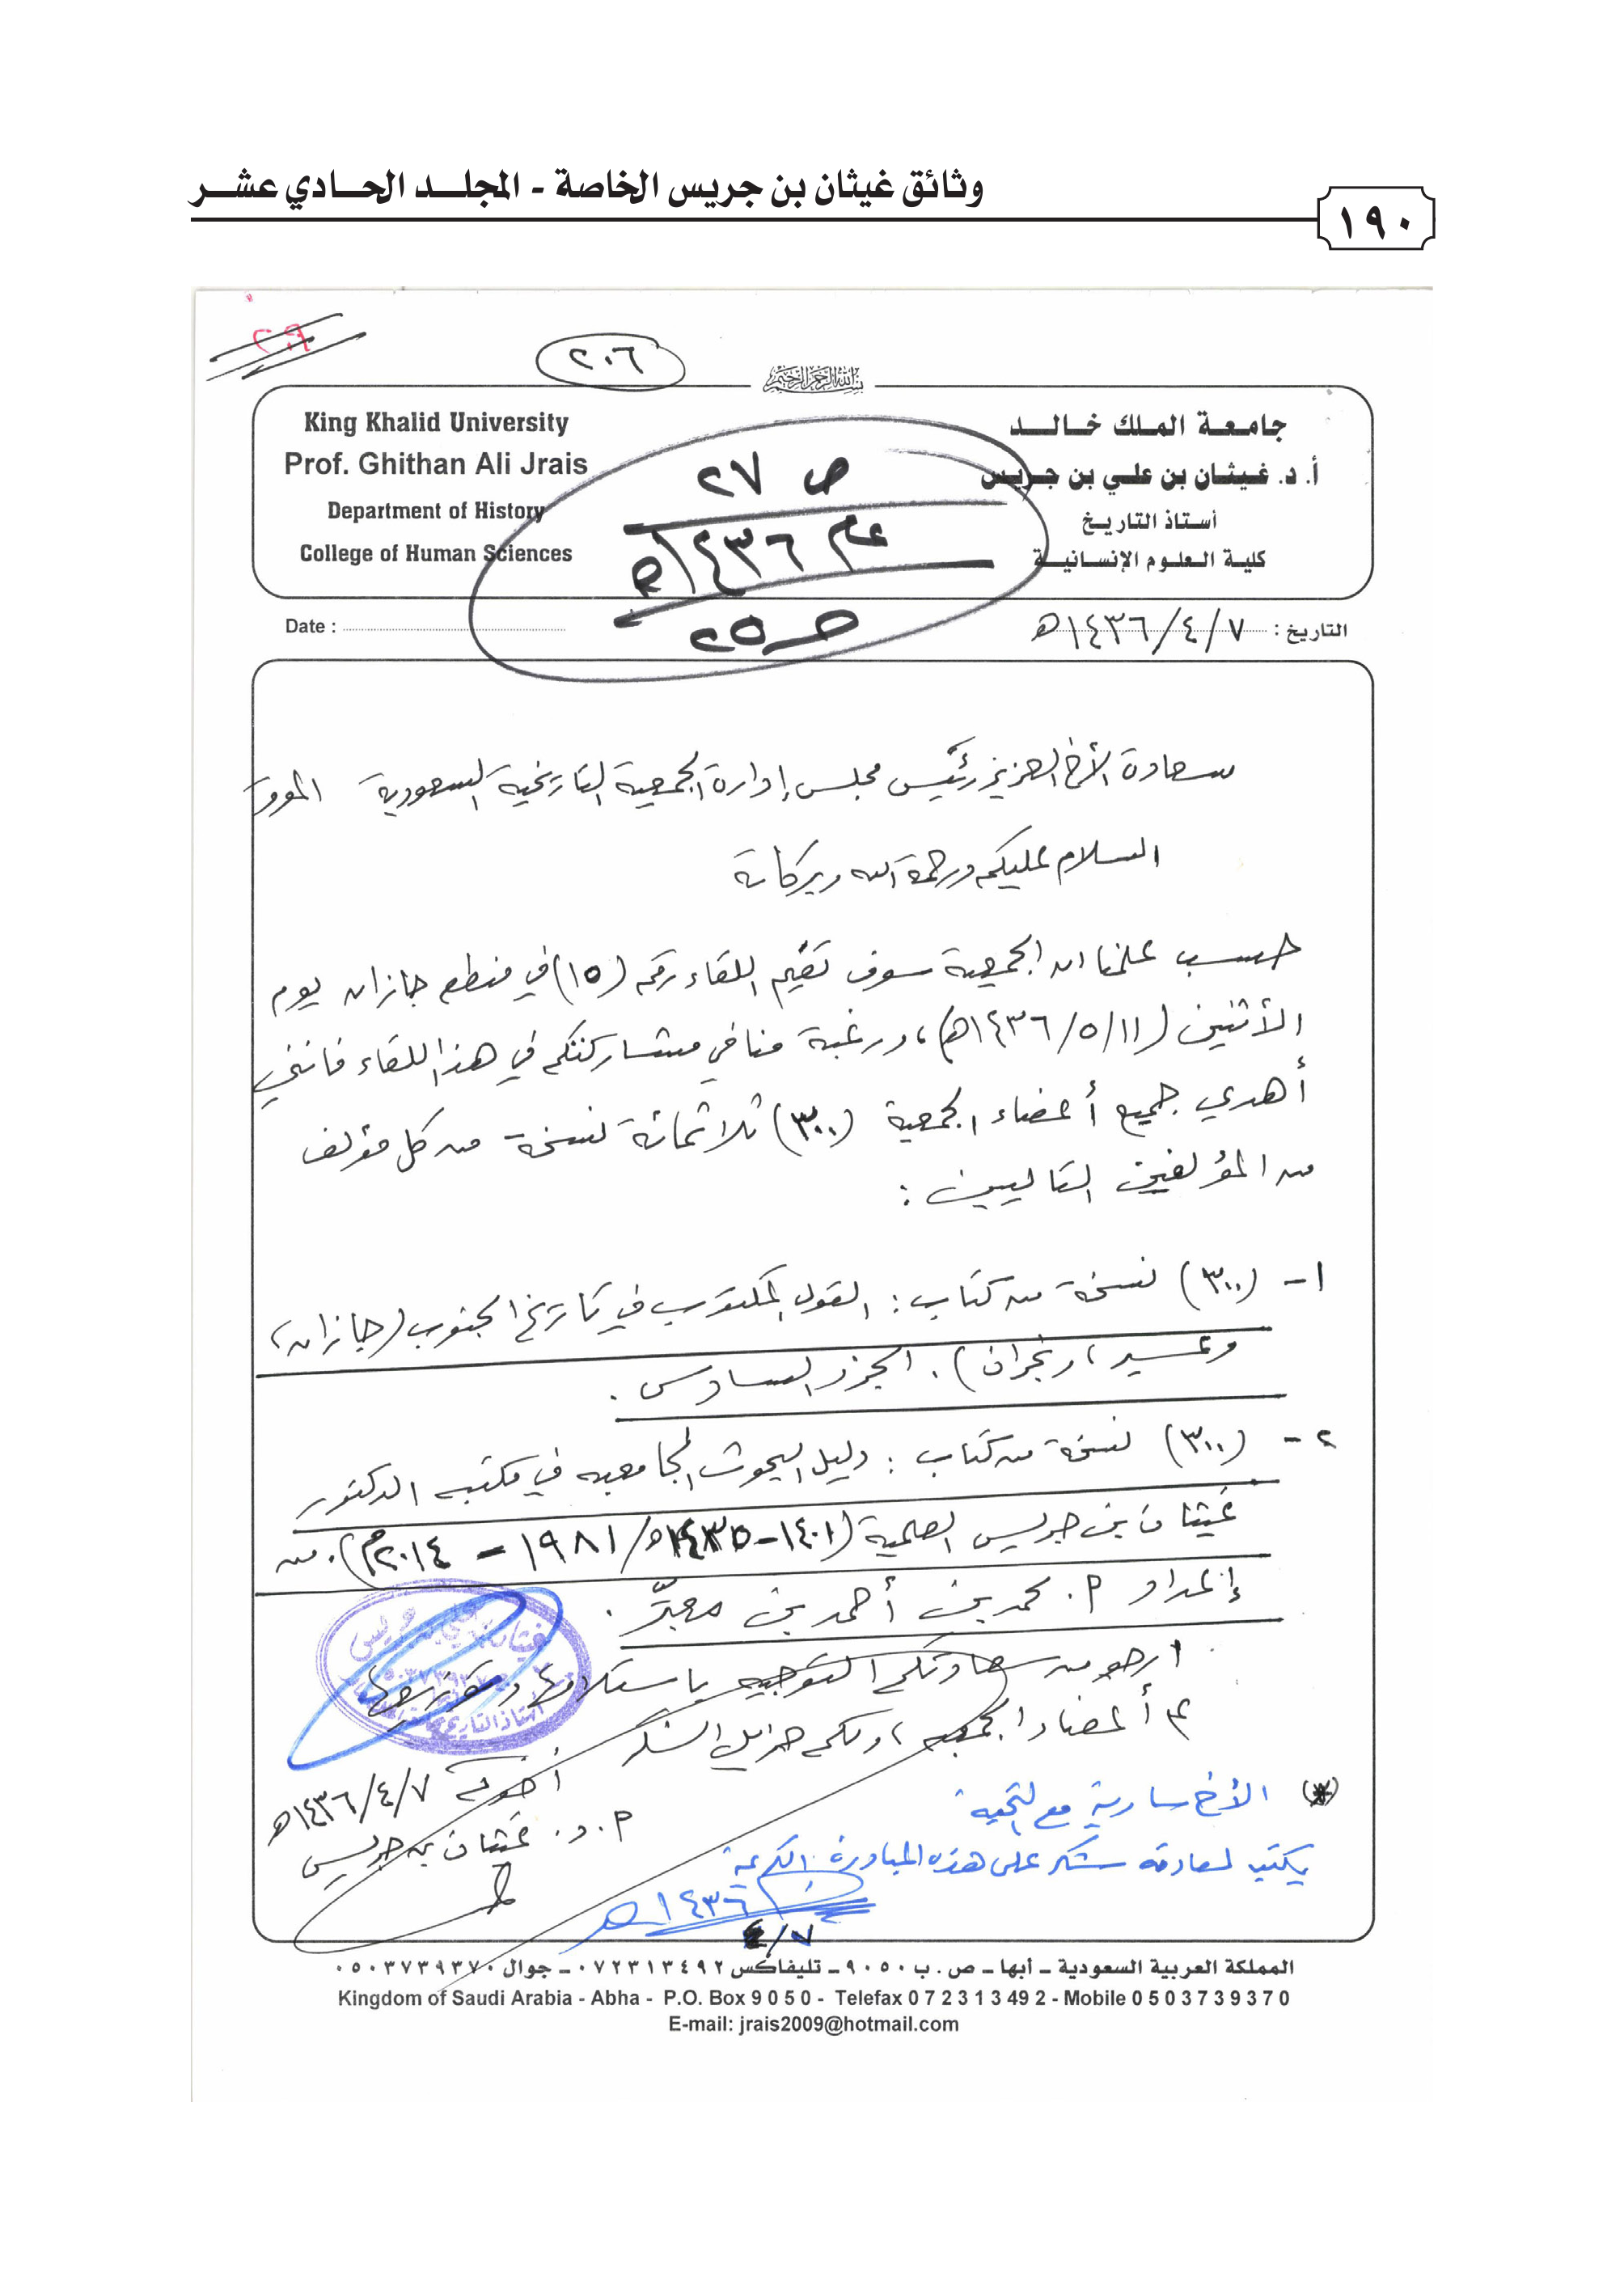 وثائق غيثان بن جريس الخاصة - المجلد الحادي عشر
١٩٠
٢٠٦
بسم الله الرحمن الرحيم
King Khalid University
Prof. Ghithan Ali Jrais
Department of History
College of Human Sciences
جامعة الملك خالد
أ. د. غيثان بن علي بن جريس
أستاذ التاريخ
كلية العلوم الإنسانية
ص ٢٧
عام ١٤٣٦هـ
ص ٢٥
Date :
التاريخ : ٧/٤/١٤٣٦هـ
سعادة الأخ العزيز رئيس مجلس إدارة الجمعية التاريخية السعودية الموقر
السلام عليكم ورحمة الله وبركاته
حسب علمنا ان الجمعية سوف تقيم اللقاء رقم (١٥) في منطقة جازان يوم
الأثنين (١١/٥/١٤٣٦هـ)، ورغبة منا في مشاركتكم في هذا اللقاء فانني
أهدي جميع أعضاء الجمعية (٣٠٠) ثلاثمائة نسخة من كل مؤلف
من المؤلفين التاليين :
١- (٣٠٠) نسخة من كتاب : القول المكتوب في تاريخ الجنوب (جازان،
وعسير، ونجران). الجزء السادس .
٢- (٣٠٠) نسخة من كتاب : دليل البحوث الجامعيه في مكتبة الدكتور
غيثان بن جريس العلمية (١٤٠١-١٤٣٥هـ/١٩٨١ - ٢٠١٤م). من
إعداد م. محمد بن أحمد بن معبّر .
ارجو من سعادتكم التوجيه باستلامها وتوزيعها
على أعضاء الجمعيه، ولكم جزيل الشكر
أخوكم ٧/٤/١٤٣٦هـ
أ.د. غيثان بن جريس
(*) الأخ سارية مع التحية
يكتب لسعادته شكر على هذه المبادرة الكريمة
١٤٣٦هـ
٤/٧
المملكة العربية السعودية ـ أبها ـ ص . ب ٩٠٥٠ ـ تليفاكس ٠٧٢٣١٣٤٩٢ ـ جوال ٠٥٠٣٧٣٩٣٧٠
Kingdom of Saudi Arabia - Abha - P.O. Box 9 0 5 0 - Telefax 0 7 2 3 1 3 49 2 - Mobile 0 5 0 3 7 3 9 3 7 0
E-mail: jrais2009@hotmail.com